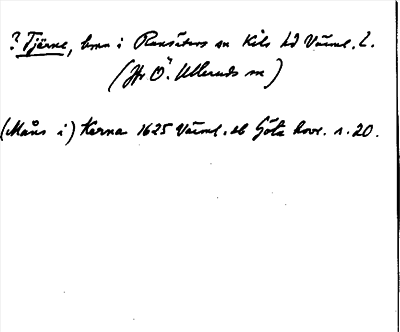 ? Tjärne, hmn i Ransäters sn Kils hd Värml. l.
(Jfr Ö. Ulleruds sn)
(Måns i) Kerna 1625 Värml. sb Göta hovr. s. 20.